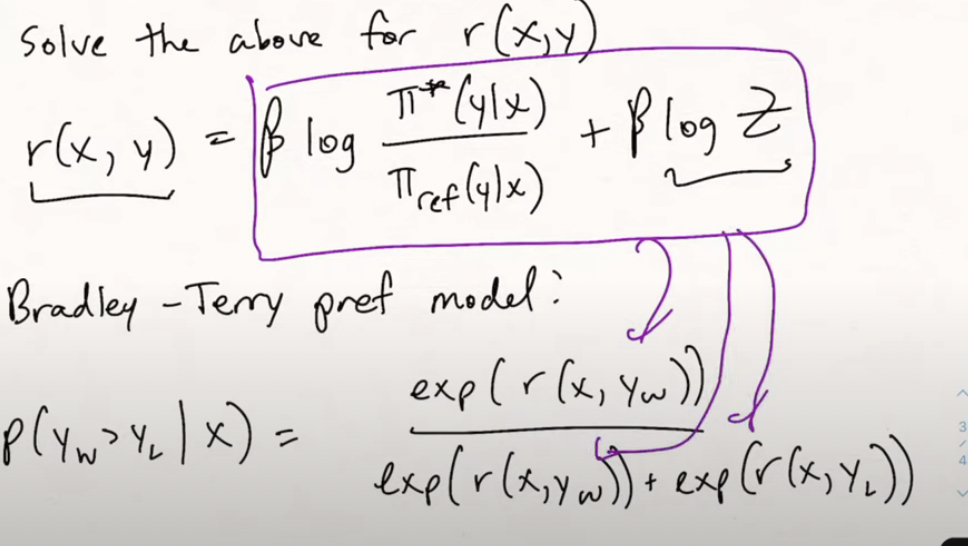 Solve the above for r(x,y)
r(x, y) = β log π*(y|x) / π_ref(y|x) + β log Z
Bradley - Terry pref model:
p(y_w > y_L | x) = exp(r(x, y_w)) / exp(r(x, y_w)) + exp(r(x, y_L))
3
/
4